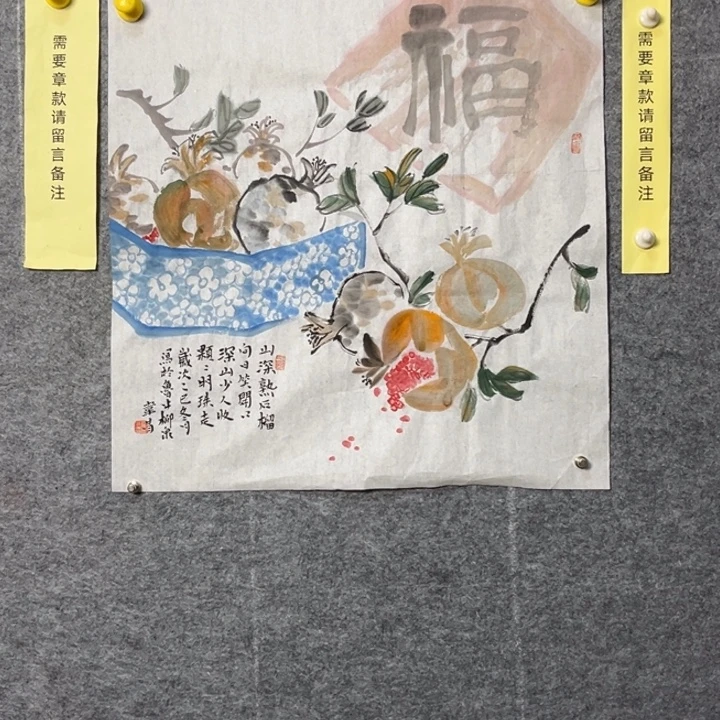 需要章款请留言备注
福
山深熟石榴
向日笑開口
深山少人收
顆々明珠走
歲次乙巳冬月
寫於魯上柳泉
需要章款请留言备注